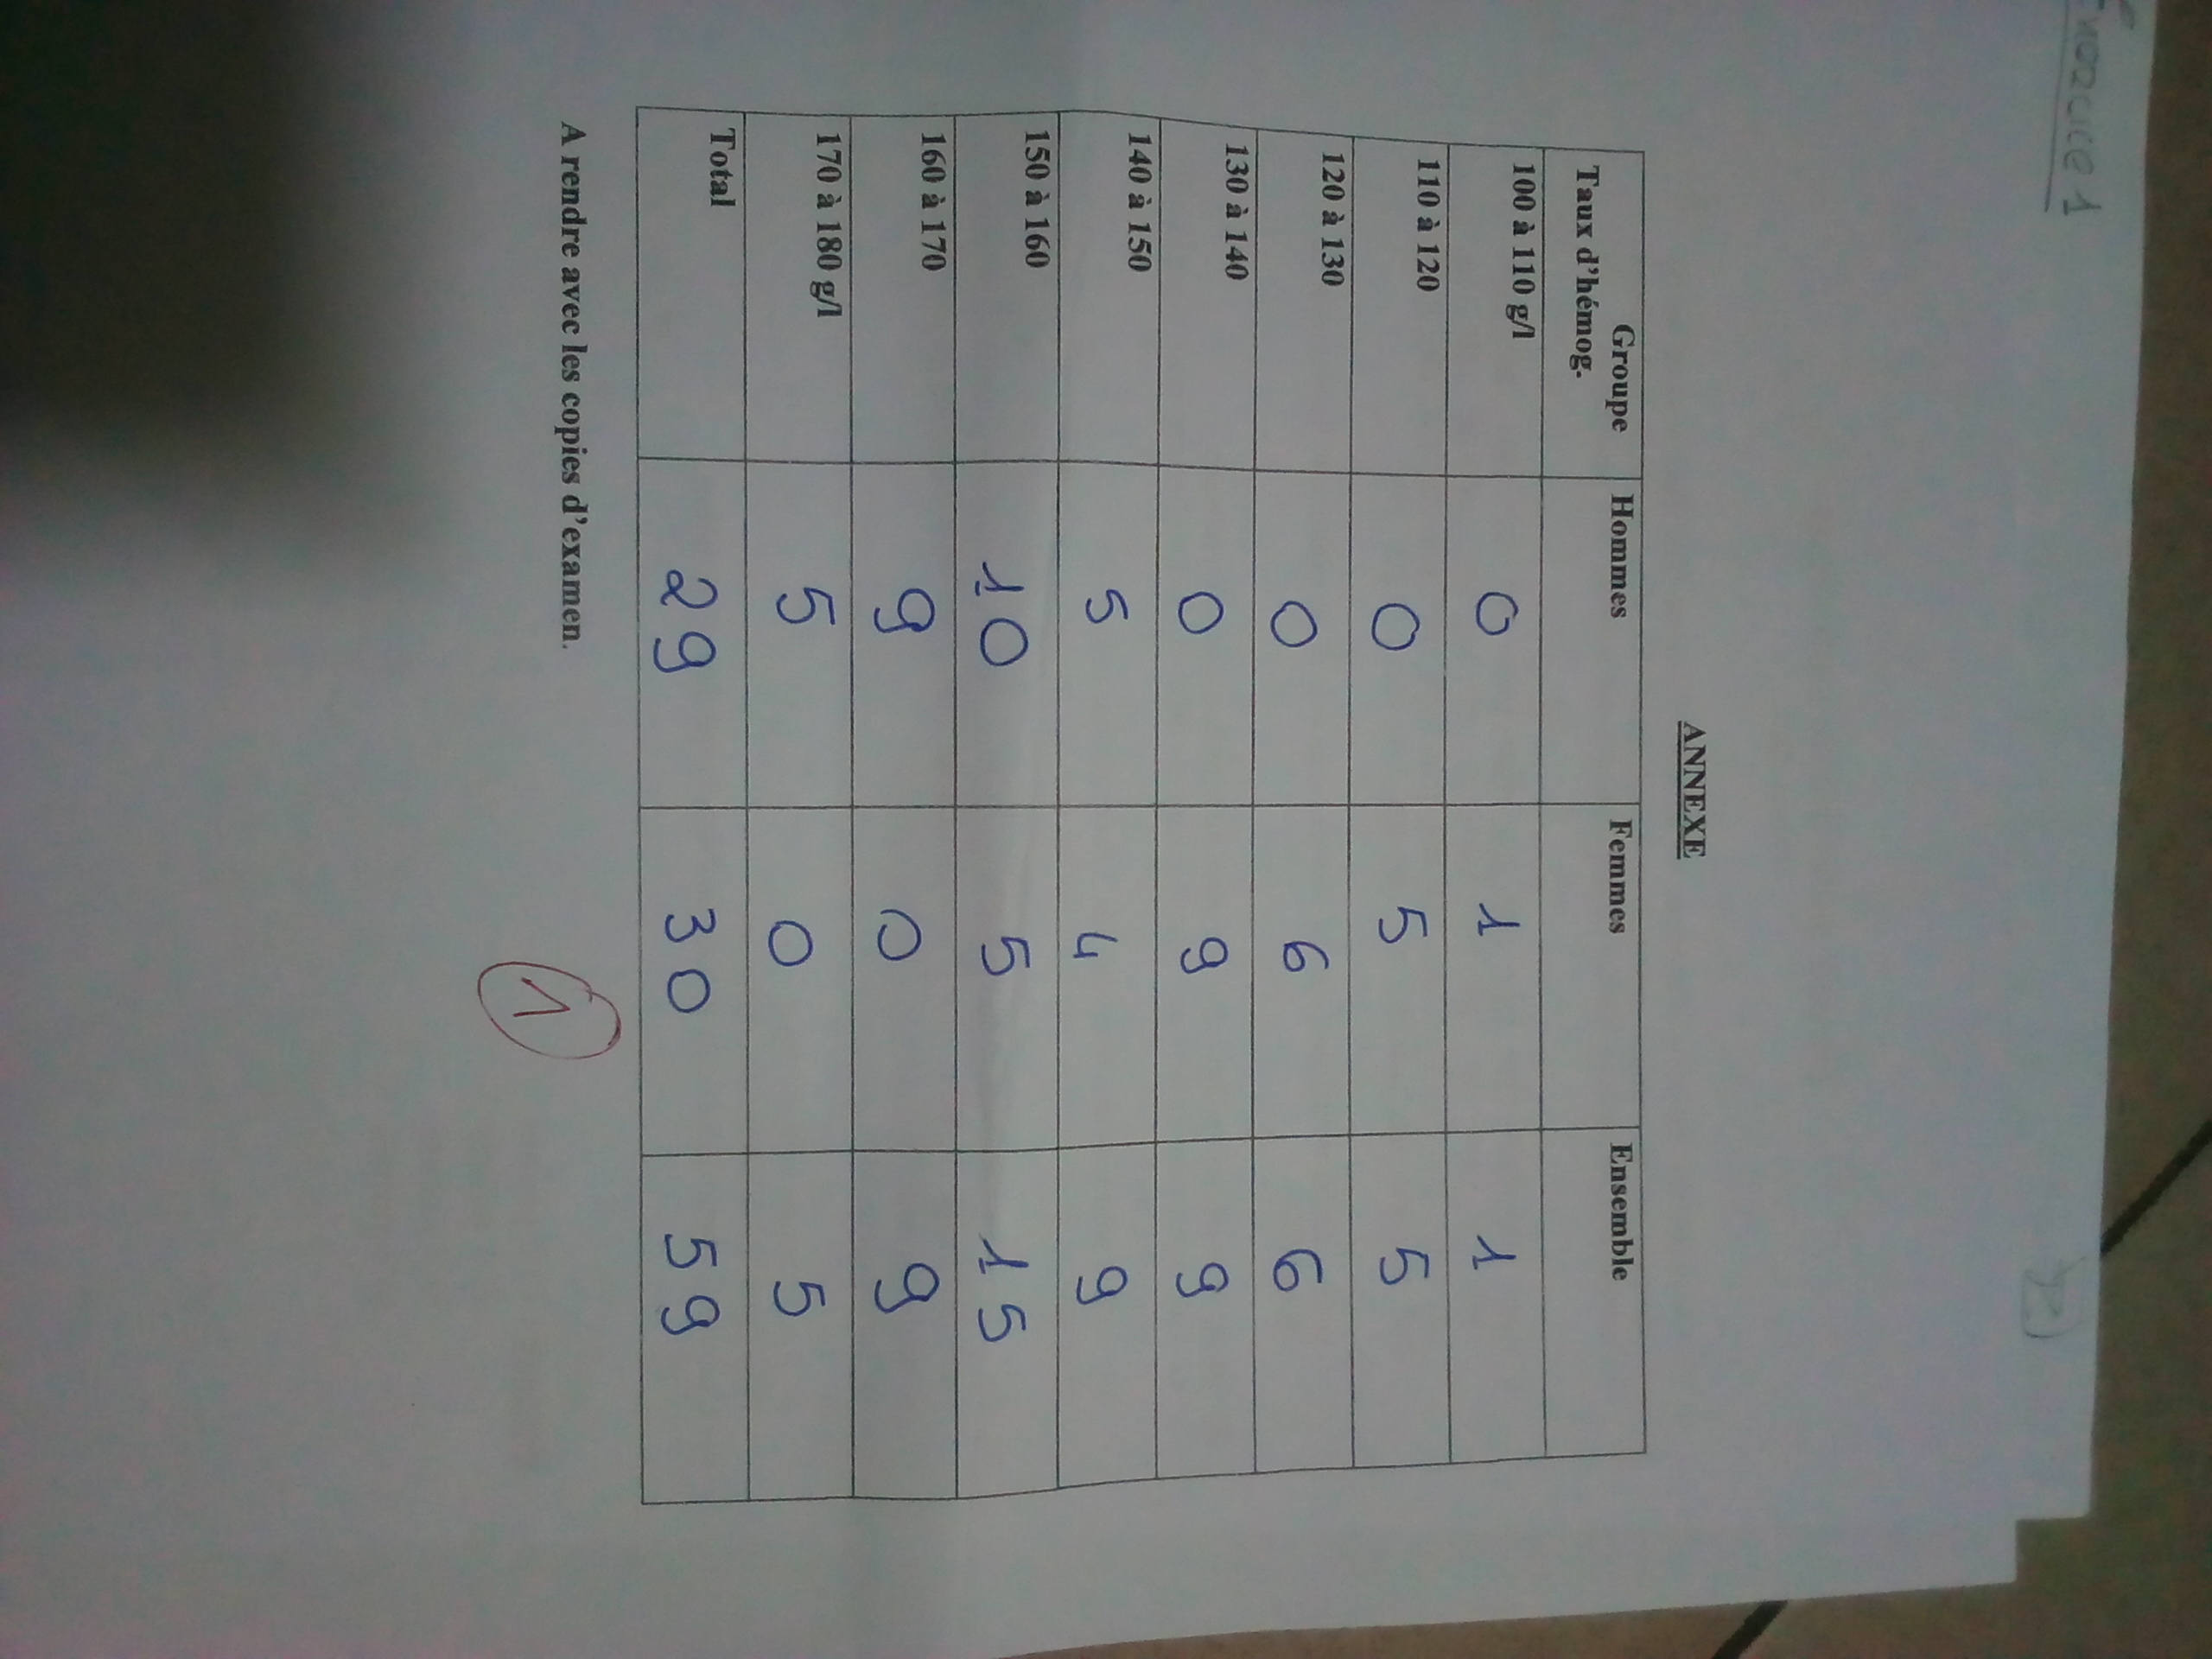 Exercice 1
ANNEXE
Groupe Hommes Femmes Ensemble
Taux d'hémog.
100 à 110 g/l 0 1 1
110 à 120 0 5 5
120 à 130 0 6 6
130 à 140 0 9 9
140 à 150 5 4 9
150 à 160 10 5 15
160 à 170 9 0 9
170 à 180 g/l 5 0 5
Total 29 30 59
A rendre avec les copies d'examen.
1